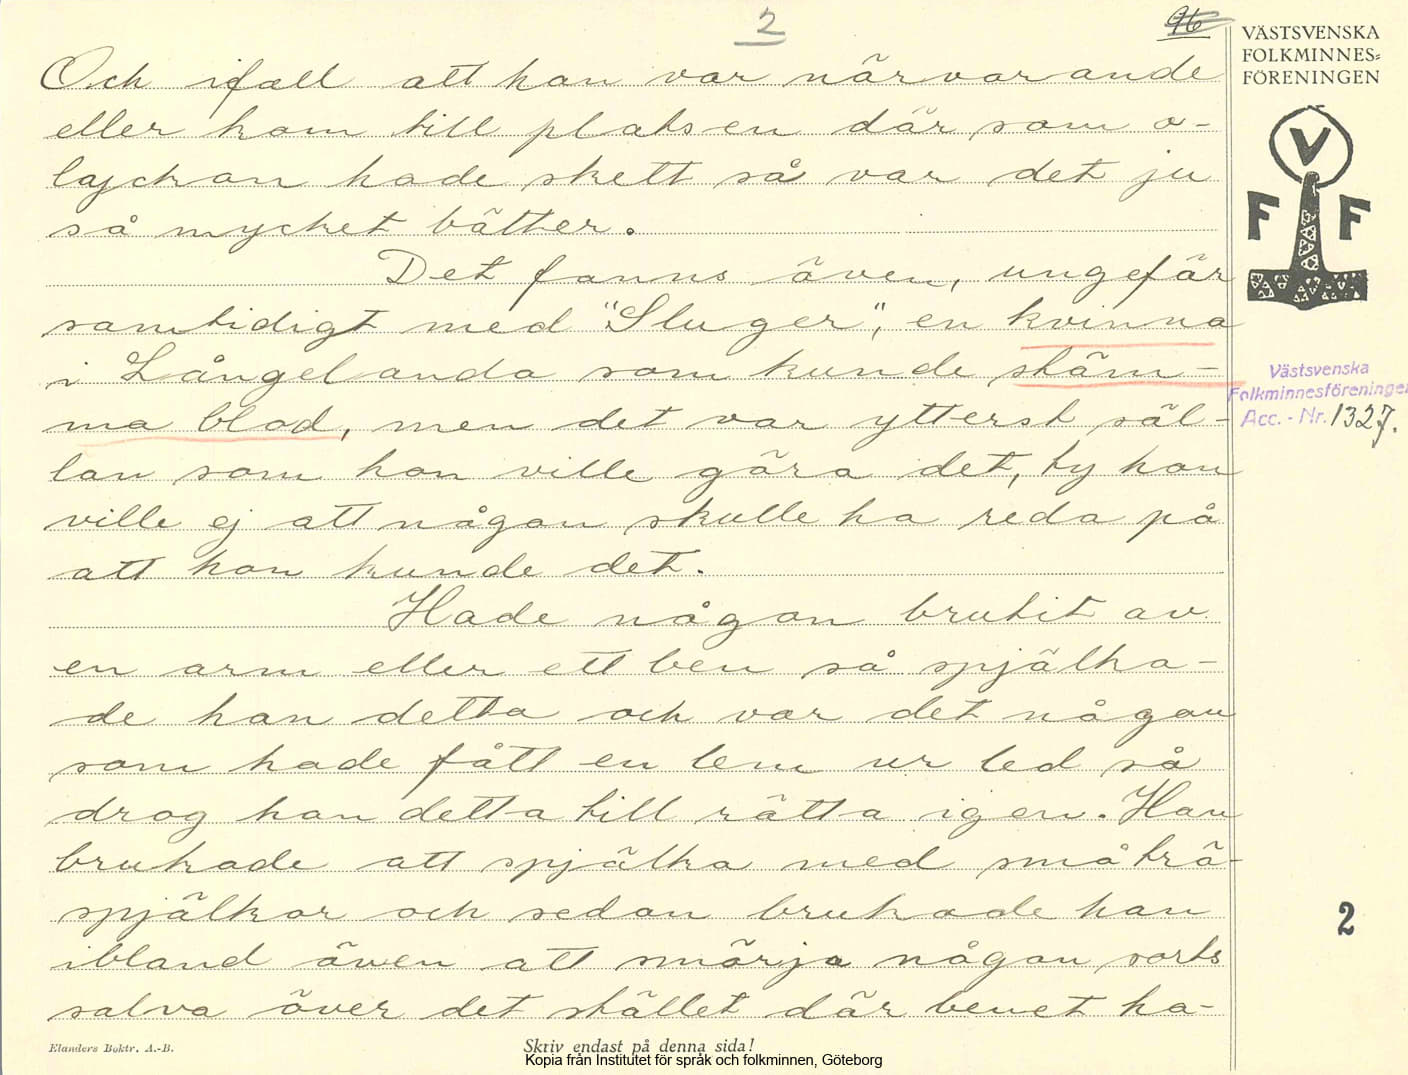 2
96
VÄSTSVENSKA
FOLKMINNES=
FÖRENINGEN
V
F F
Västsvenska
Folkminnesföreningen
Acc. - Nr. 1327.
Och ifall att han var närvarande
eller kom till platsen där som o-
lyckan hade skett så var det ju
så mycket bätter.
Det fanns även, ungefär
samtidigt med "Sluger", en kvinna
i Långelanda som kunde stäm-
ma blod, men det var ytterst säl-
lan som hon ville göra det, ty hon
ville ej att någon skulle ha reda på
att hon kunde det.
Hade någon brutit av
en arm eller ett ben så spjälka-
de han detta och var det någon
som hade fått en lem ur led så
drog han detta till rätta igen. Han
brukade att spjälka med små trä-
spjälkor och sedan brukade han
ibland även att smörja någon sorts
salva över det stället där benet ha-
2
Elanders Boktr. A.-B.
Skriv endast på denna sida!
Kopia från Institutet för språk och folkminnen, Göteborg